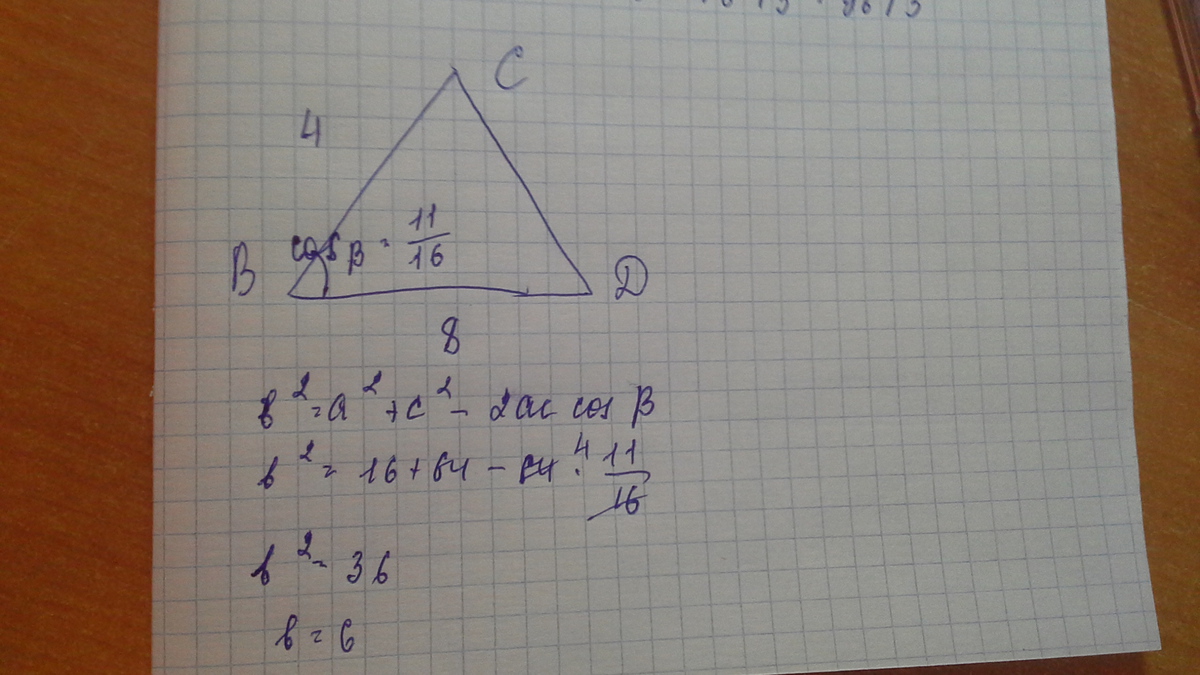 C
4
cos β = 11/16
B
D
8
b² = a² + c² - 2ac cos β
b² = 16 + 64 - 64 ·⁴ 11/16
b² = 36
b = 6